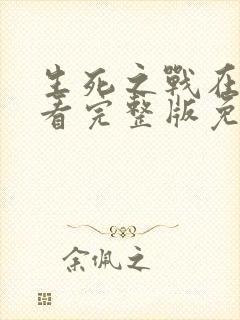 生死之戰在
看完整版免
余佩之